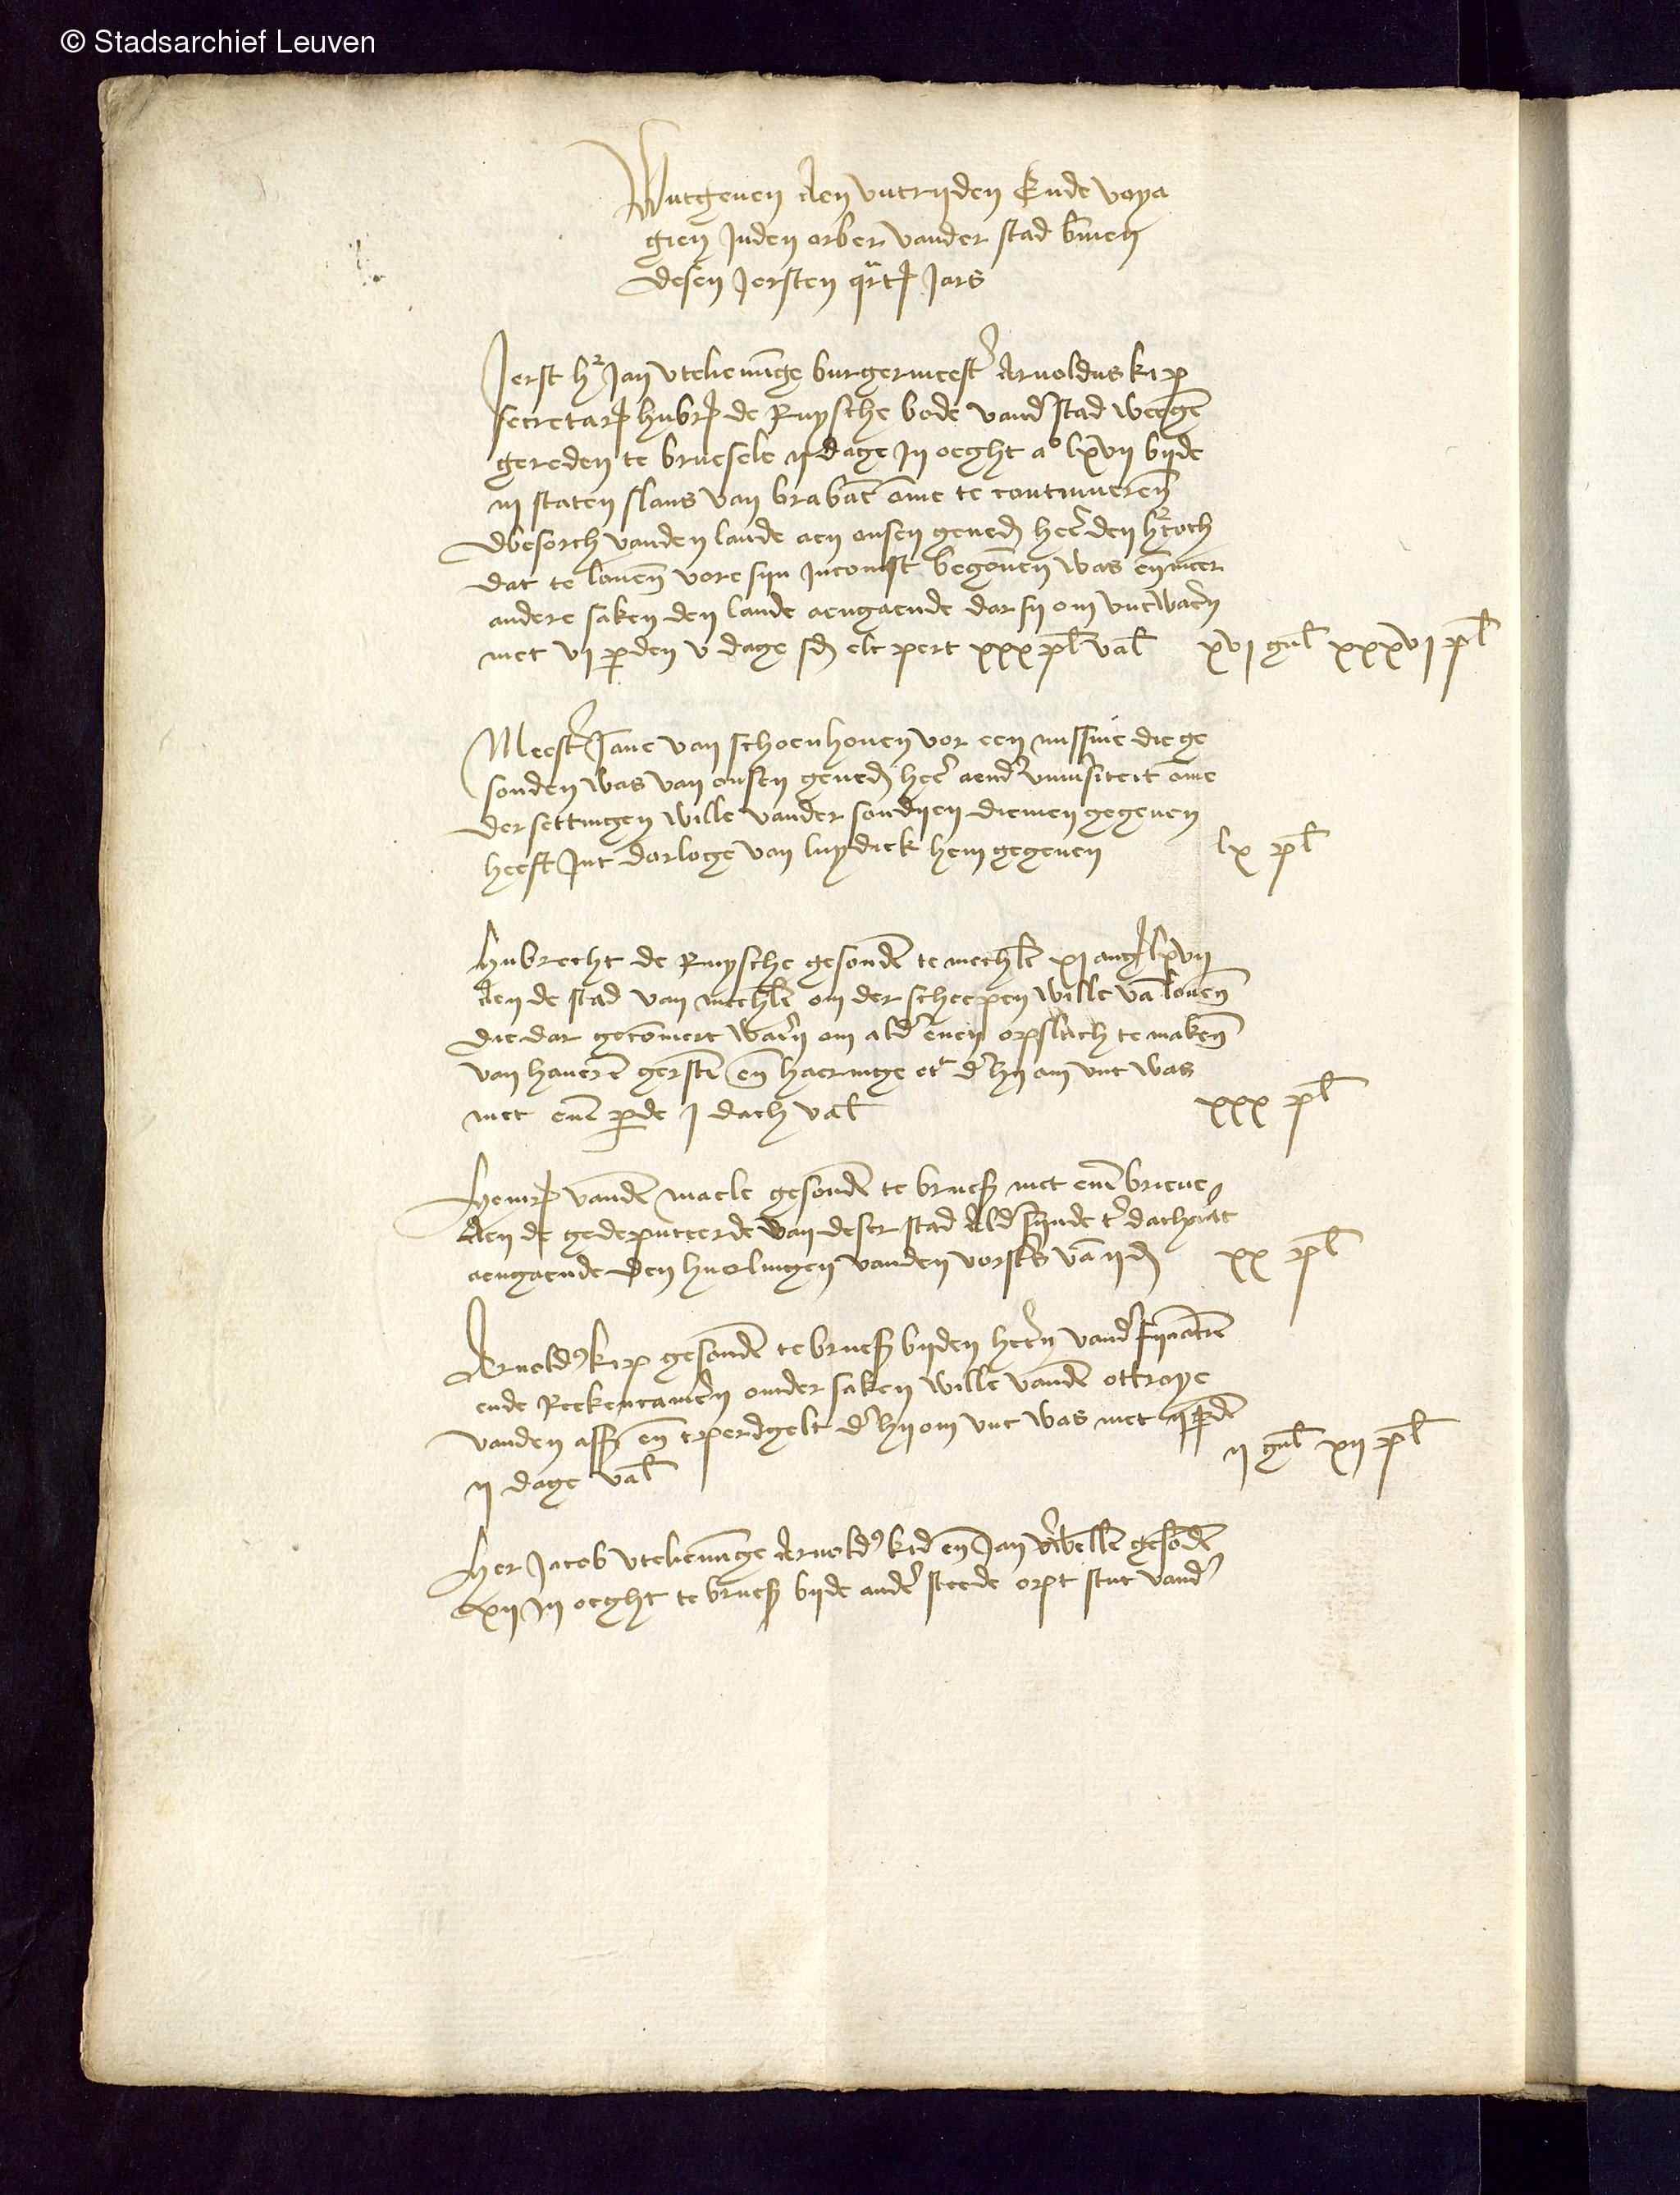 © Stadsarchief Leuven
Wutgeven Aen vutrijden Ende voya
gien Inden orber vander stad bīnen
desen Jersten qrt Jars
Jerst hr Jan vtelieminge burgermeest Arnoldus kip
secretar hubr de Ruyssche bode vand stad weegē
gereden te bruesele ij dage In oeght ao lxvij bijde
iij staten slans van brabāt ōme te continueren
dbesorch vanden lande aen onsen gened heē den htoch
dat te louen vore sijn Incomst begōnen was eñ meer
andere saken den lande aengaende dar sy om vut waēn
met vj pden v dage sd elc pert xxx pl val xvj gul xxxvj pl
Meest Jāne van schoenhouen vor een missiue die ge
sonden was van onsen gened heē aend vniūsiteit ōme
der settingen wille vander sondijen diemen gegeuen
heeft Int darloge van luydick hem gegeuen lx pl
hubrecht de Ruyssche gesondē te mechlē xj aug lxvij
Aen de stad van mechlē om der scheepen wille vā louen
die dar gecōmert waēn om ald enen opslach te maken
van haueren gerstē eñ haeringe etc d hy om vut was
met enē pde j dach val xxx pl
Henr vandē maele gesondē te brues met enē brieue
Aen de gedeputeerde van deser stad Ald sijnde t dachvāt
aengaende den huerlingen vanden vorsts vā ijd xx pl
Arnold kip gesondē te brues bijden heēn vand fijnācien
ende Rekencameēn om der saken wille vandē ottroye
vanden ass eñ tperdgelt d hy om vut was met ij pdē
ij dage val ij gul xij pl
Her Jacob vtelieminge Arnold kip eñ Jan gesondē
xij In oeght te brues bijde andē steede opt stuc vand